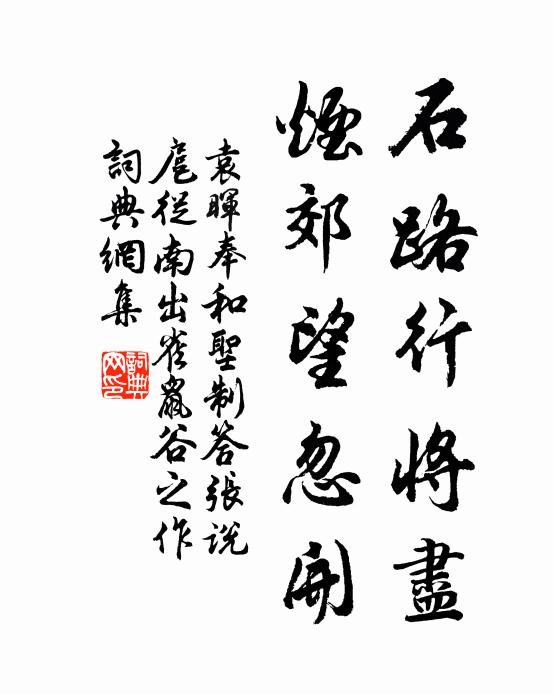 石路行将盡
煙郊望忽開
袁暉奉和聖制答張说
扈従南出雀鼠谷之作
詞典網集
詞典網印